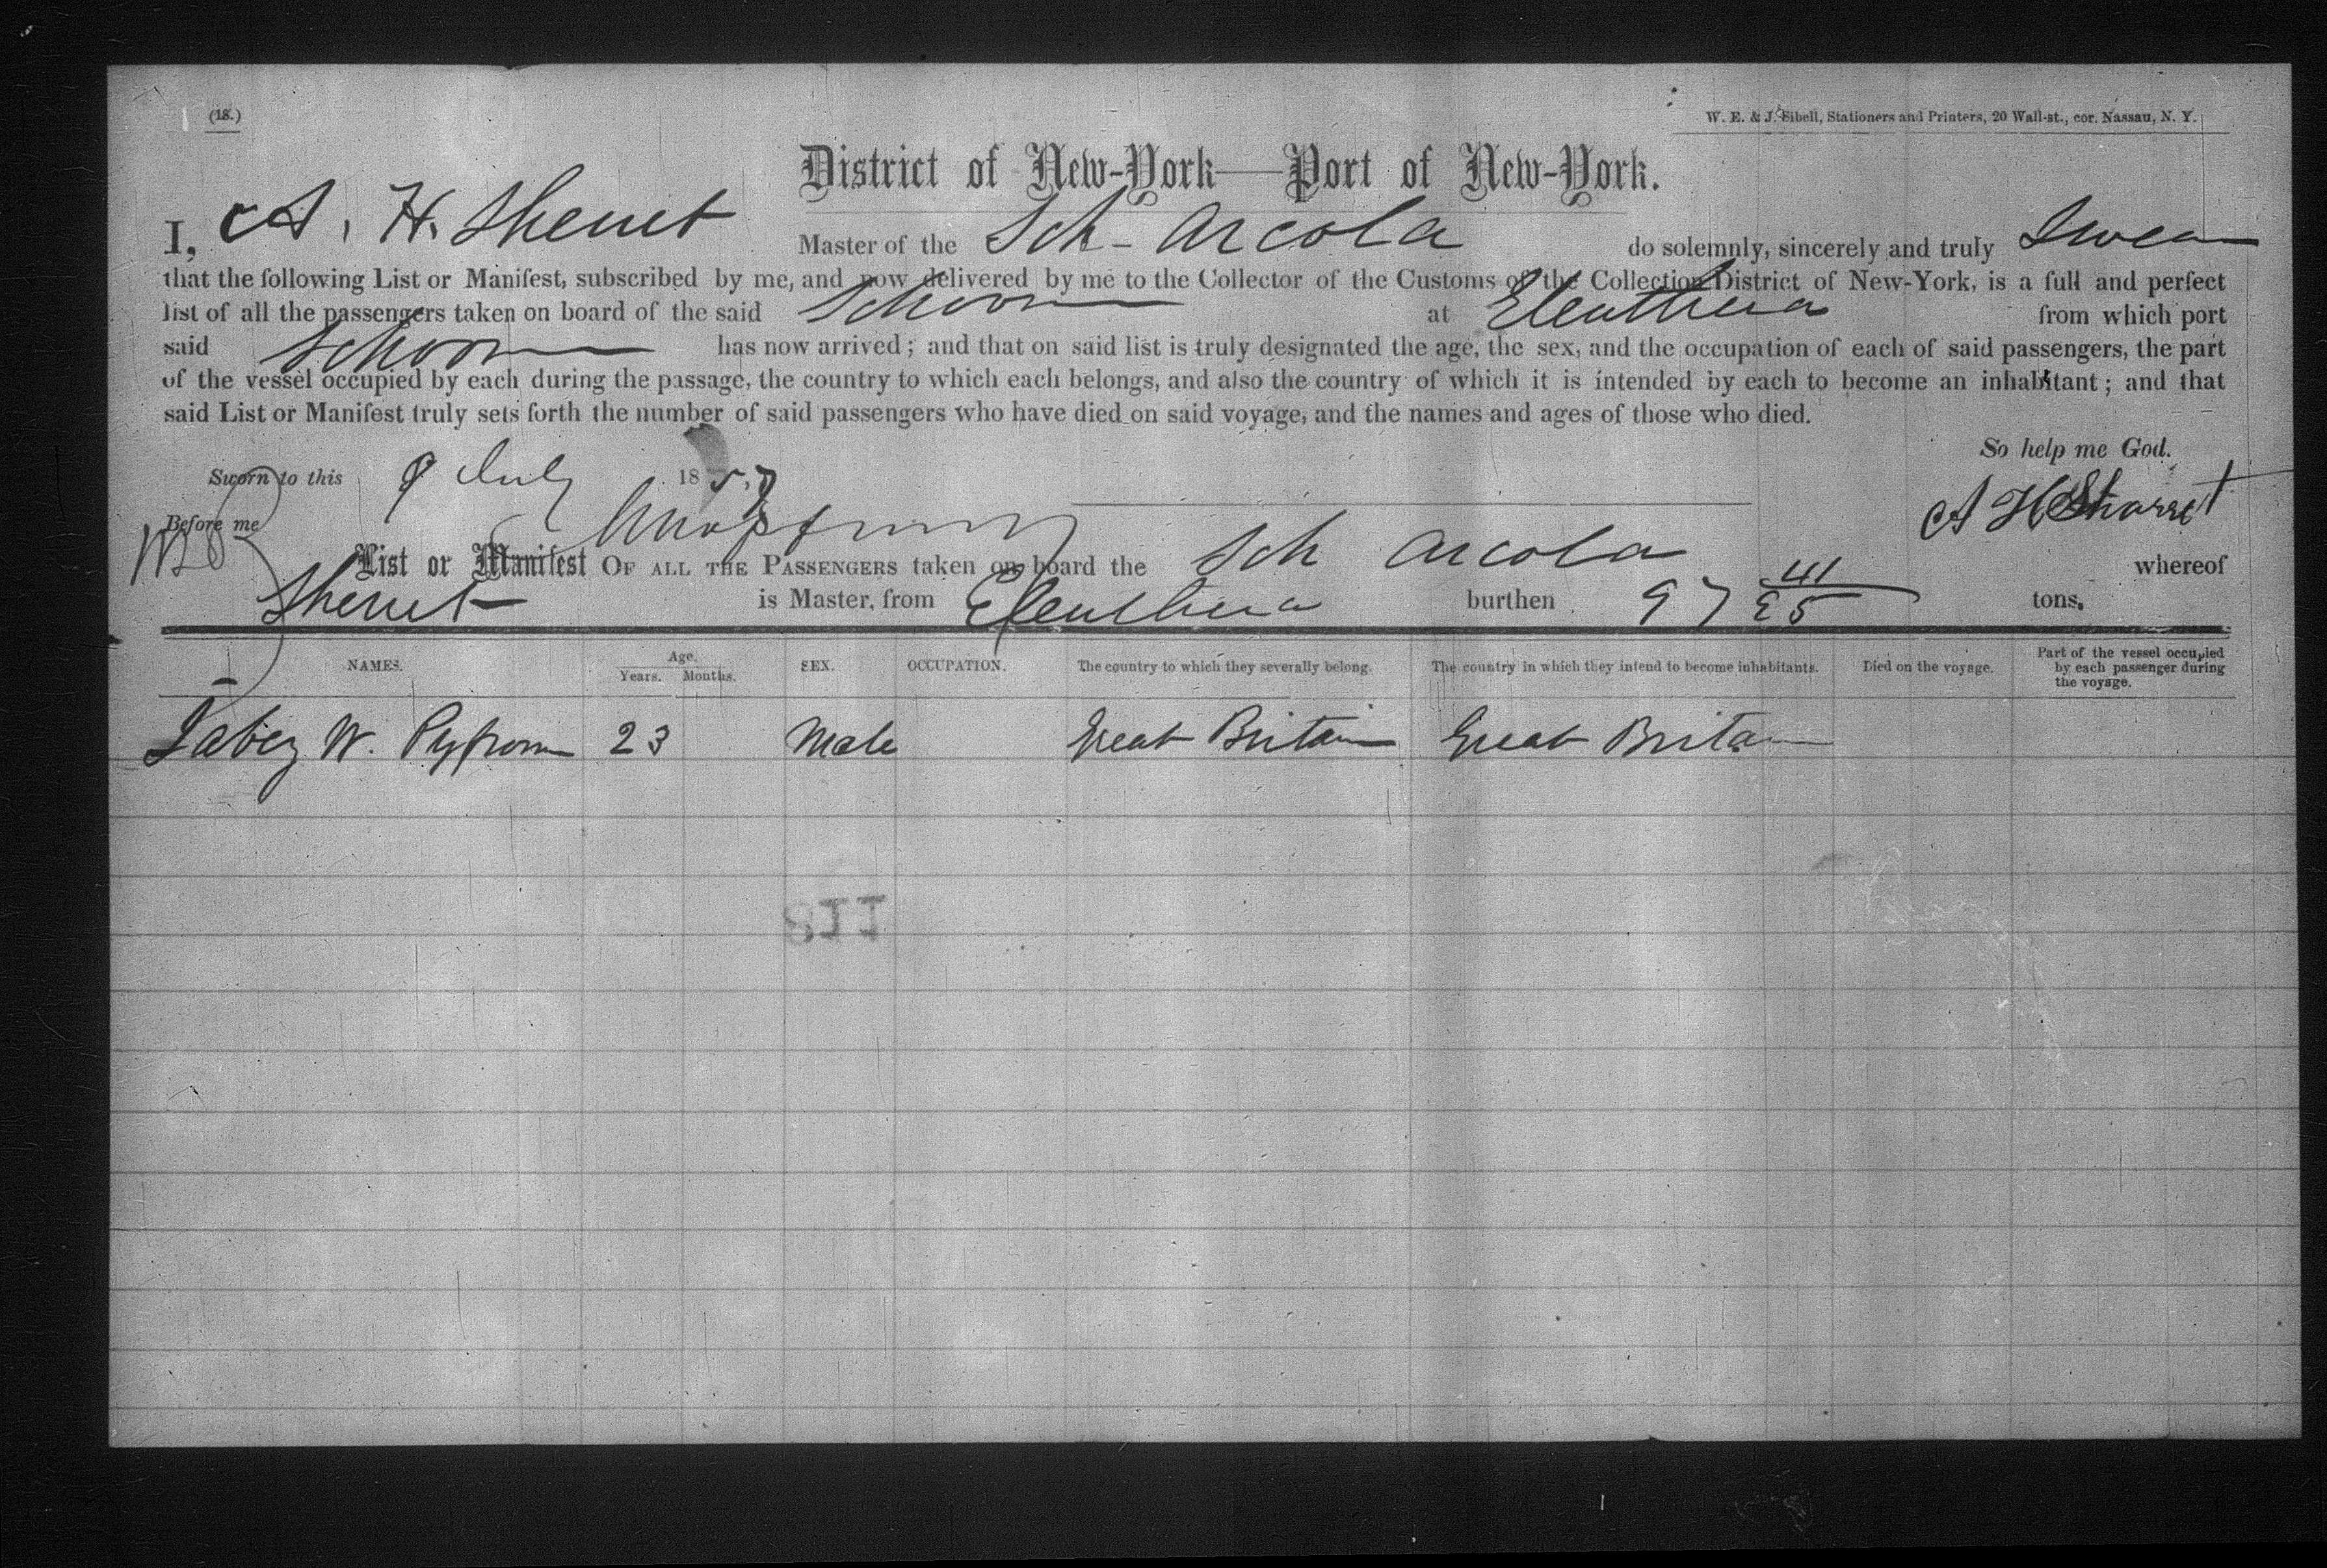 (18.)
W. E. & J. Sibell, Stationers and Printers, 20 Wall-st., cor. Nassau, N. Y.
District of New-York—Port of New-York.
I, A. H. Sherret Master of the Sch - Arcola do solemnly, sincerely and truly Swear
that the following List or Manifest, subscribed by me, and now delivered by me to the Collector of the Customs of the Collection District of New-York, is a full and perfect
list of all the passengers taken on board of the said Schooner at Eleuthera from which port
said Schooner has now arrived; and that on said list is truly designated the age, the sex, and the occupation of each of said passengers, the part
of the vessel occupied by each during the passage, the country to which each belongs, and also the country of which it is intended by each to become an inhabitant; and that
said List or Manifest truly sets forth the number of said passengers who have died on said voyage, and the names and ages of those who died.
So help me God.
Sworn to this 9 July 1857
Before me
A H Sharret
List or Manifest OF ALL THE PASSENGERS taken on board the Sch Arcola whereof
Sherret is Master, from Eleuthera burthen 97 41/95 tons.
NAMES. Age. Years. Months. SEX. OCCUPATION. The country to which they severally belong. The country in which they intend to become inhabitants. Died on the voyage. Part of the vessel occupied by each passenger during the voyage.
Jabez W. Pyfrom 23 Male Great Britain Great Britain
118